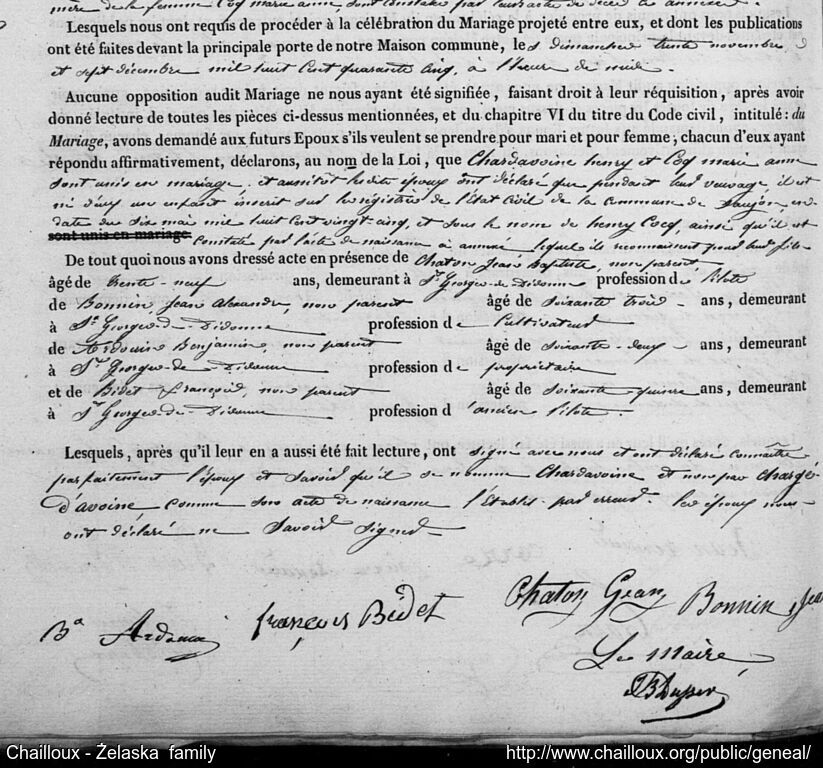 mère de la femme Cocq marie anne, sont constatés par leurs actes de décès ci annexés.
Lesquels nous ont requis de procéder à la célébration du Mariage projeté entre eux, et dont les publications
ont été faites devant la principale porte de notre Maison commune, les dimanches trente novembre
et sept décembre mil huit Cent quarante cinq, à l'heure de midi.
Aucune opposition audit Mariage ne nous ayant été signifiée, faisant droit à leur réquisition, après avoir
donné lecture de toutes les pièces ci-dessus mentionnées, et du chapitre VI du titre du Code civil, intitulé: du
Mariage, avons demandé aux futurs Epoux s'ils veulent se prendre pour mari et pour femme; chacun d'eux ayant
répondu affirmativement, déclarons, au nom de la Loi, que Chardavoine henry et Cocq marie anne
sont unis en mariage. et aussitôt lesdits époux ont déclaré que pendant leur veuvage, il est
né d'eux un enfant inscrit sur les registres de l'Etat Civil de la Commune de Saujon en
date du six mai mil huit cent vingt-cinq, et sous le nom de henry Cocq, ainsi qu'il est
sont unis en mariage. Constaté par l'acte de naissance ci annexé lequel ils reconnaissent pour leur fils
De tout quoi nous avons dressé acte en présence de Chaton Jean Baptiste, non parent
âgé de trente-neuf ans, demeurant à St. Georges-de-Didonne profession de pilote
de Bonnin, Jean Alexandre, non parent âgé de soixante trois ans, demeurant
à St. Georges-de-Didonne profession de Cultivateur
de Ardouin Benjamin, non parent âgé de soixante-deux ans, demeurant
à St. Georges-de-Didonne profession de propriétaire
et de Bidet François, non parent âgé de soixante-quinze ans, demeurant
à St. Georges-de-Didonne profession d'ancien pilote.
Lesquels, après qu'il leur en a aussi été fait lecture, ont signé avec nous et ont déclaré connaître
parfaitement l'époux et savoir qu'il se nomme Chardavoine et non pas Chargé-
d'avoine, comme son acte de naissance l'établit par erreur. les époux nous
ont déclaré ne savoir signer
Chaton Jean Bonnin Jean
Ba Ardouin françois Bidet
Le Maire
Chailloux - Żelaska family http://www.chailloux.org/public/geneal/